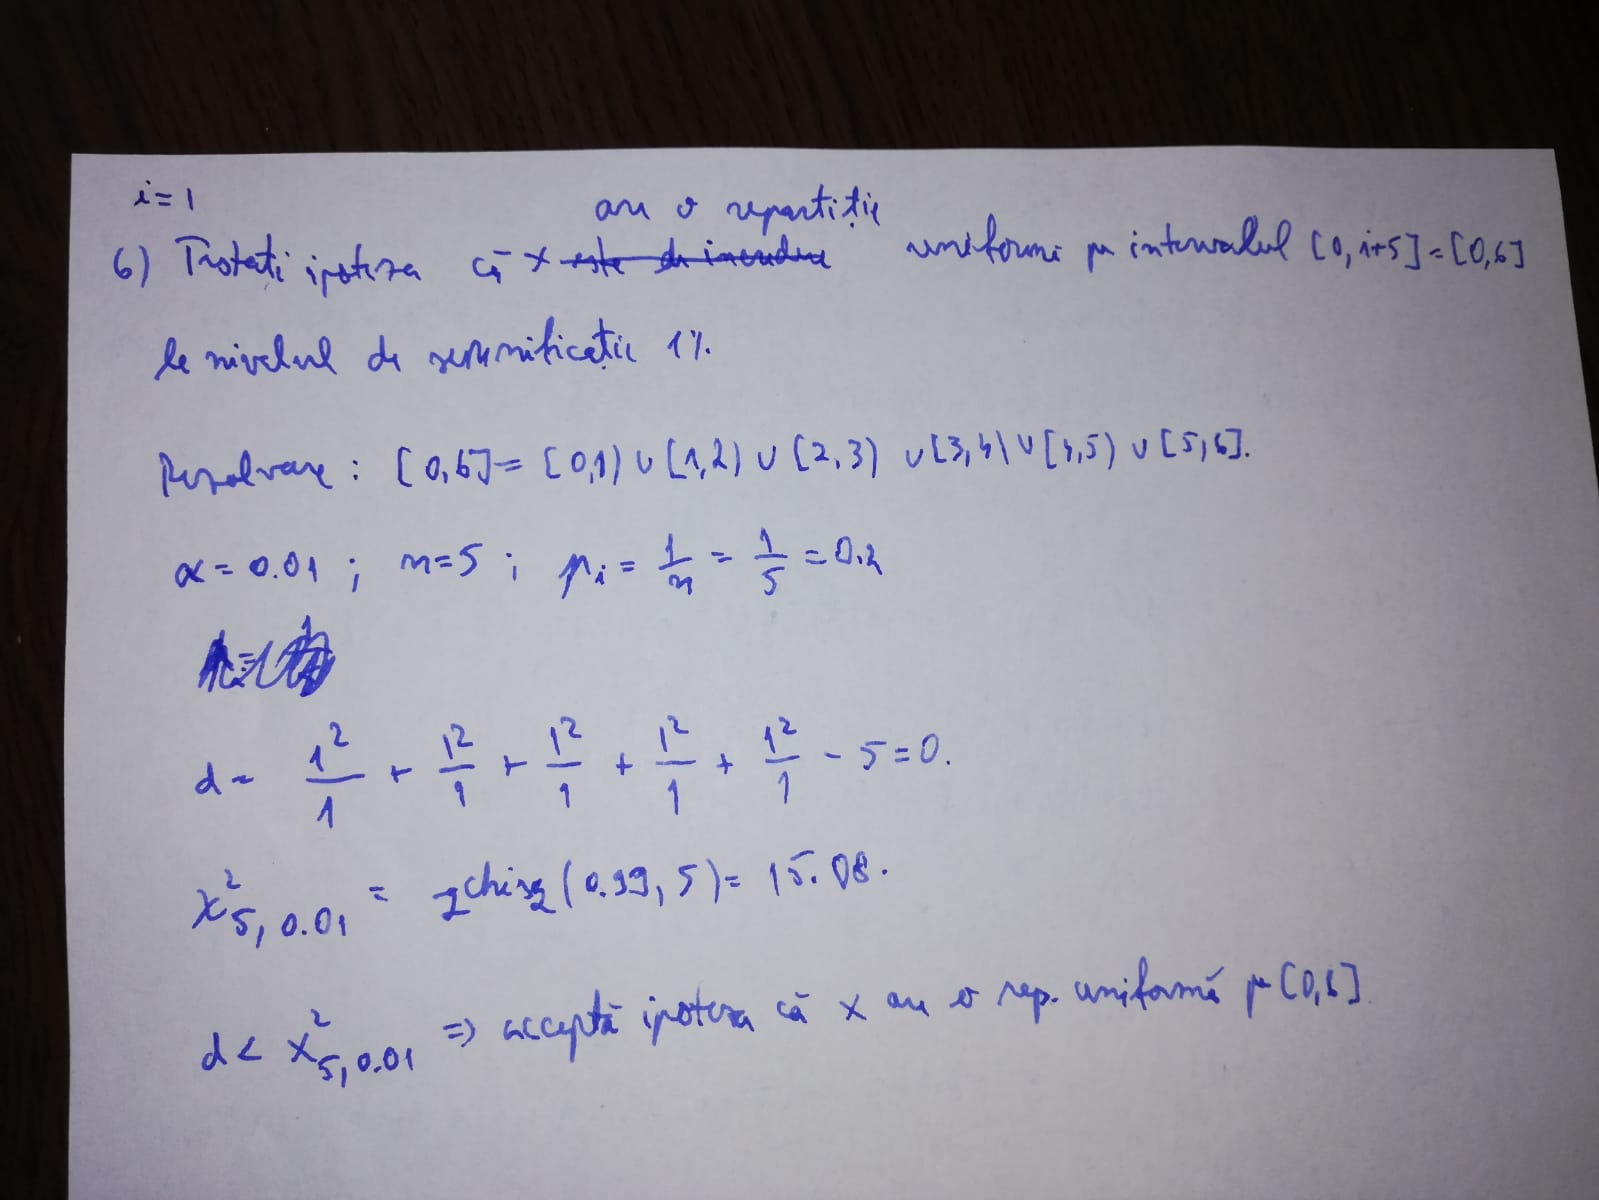 i=1
au o repartiție
6) Testați ipoteza că X este de incredere uniformă pe intervalul [0, i+5]=[0,6]
le nivelul de semnificație 1%.
Rezolvare : [0,6]= [0,1) ∪ [1,2) ∪ [2,3) ∪ [3,4) ∪ [4,5) ∪ [5,6].
α = 0.01 ; n=5 ; pi = 1/n = 1/5 = 0.2
d = 1²/1 + 1²/1 + 1²/1 + 1²/1 + 1²/1 - 5 = 0.
X²5, 0.01 = qchisq(0.99, 5) = 15.08.
d < X²5, 0.01 => acceptă ipoteza că X au o rep. uniformă pe [0,6]